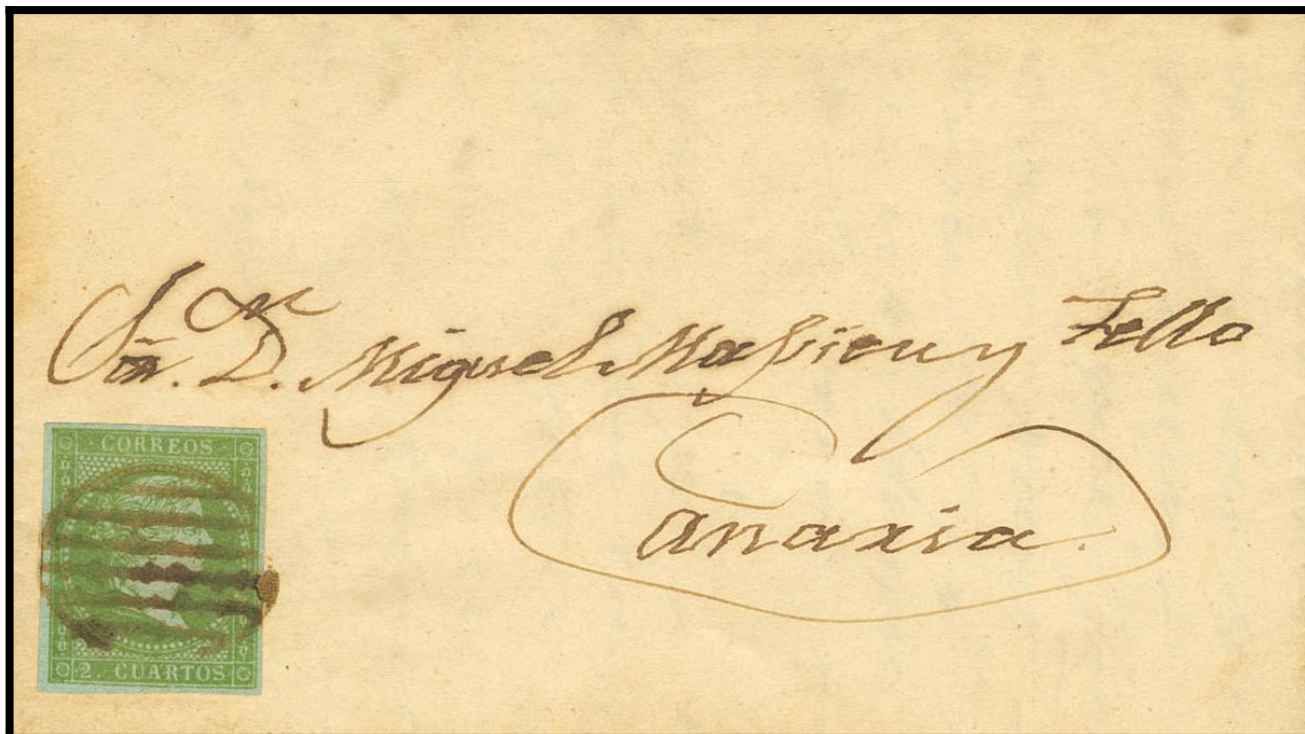 D. Miguel Massieu y Tello
Canaria.
CORREOS
2. CUARTOS